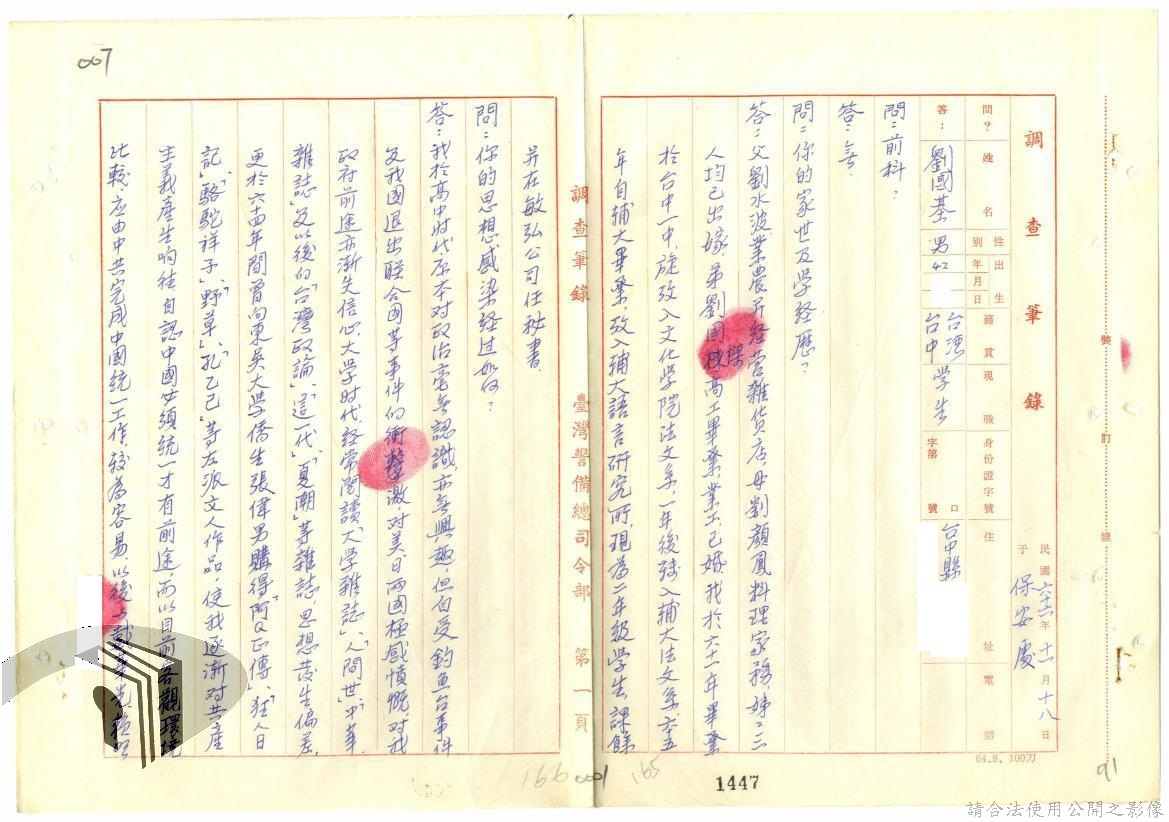 007
調查筆錄
民國六六年十一月十八日
于保安處
問？
答：
姓名
劉國基
性別
男
出生年月日
42
籍貫
台灣台中
現職
學生
身份證字號
字第
口
號
住址
台中縣
電話
64.8. 100刀
裝
訂
線
問：前科？
答：无.
問：你的家世及学经歷？
答：父劉水波業農并经营雜货店，母劉顏鳳料理家務，姊二三
人均已出嫁，弟劉國樑高工畢業，業工，已婚，我於六十一年畢業
於台中一中，旋攷入文化学院法文系，一年後转入輔大法文系，六十五
年自輔大畢業，攷入輔大語言研究所，現為二年級学生，課餘
調查筆錄
臺灣警備總司令部
第一頁
并在敏弘公司任秘書。
問：你的思想感染经过如何？
答：我於高中时代，原本对政治毫无認識，亦无興趣，但自受釣鱼台事件
及我國退出联合國等事件的衝擊激，对美、日兩國極感憤慨，对我
政府前途亦漸失信心，大学时代，经常閱讀「大学雜誌」、「人間世」、「中華
雜誌」及以後的「台灣政論」、「這一代」、「夏潮」等雜誌，思想发生偏差，
更於六十四年間曾向東吳大学僑生張偉男購得「阿Q正傳」、「狂人日
記」、「駱駝祥子」、「野草」、「孔乙己」等左派文人作品，使我逐漸对共產
主義產生响往，自認中國必須統一才有前途，而以目前客觀環境
比較，应由中共完成中國統一工作，較為容易，以後与戴華光、賴明
166
0001
165
1447
91
請合法使用公開之影像